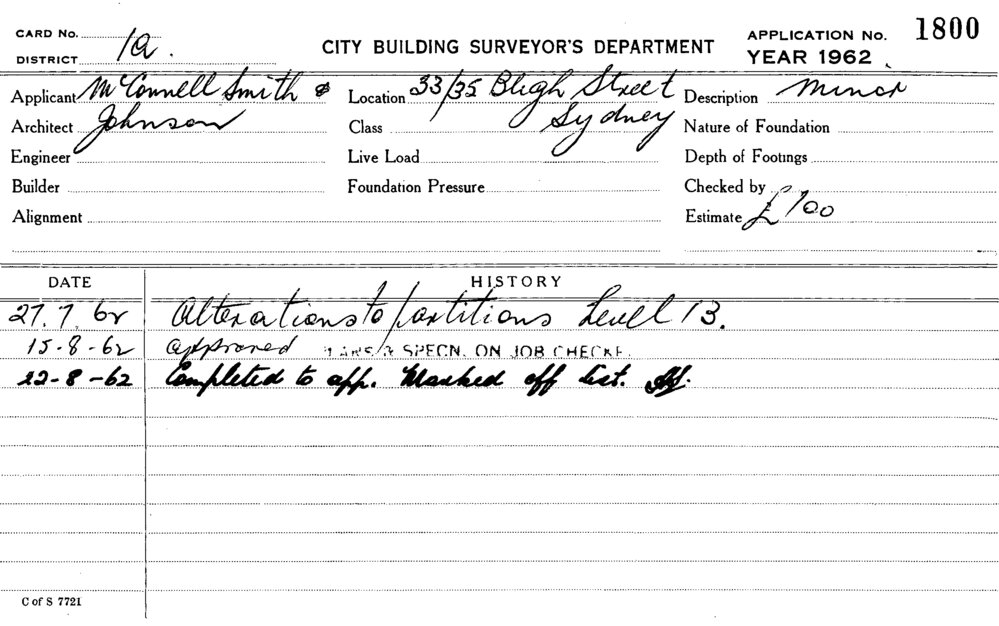 CARD No.
DISTRICT 1a.
CITY BUILDING SURVEYOR'S DEPARTMENT
APPLICATION No. 1800
YEAR 1962
Applicant McConnell Smith &
Architect Johnson
Engineer
Builder
Alignment
Location 33/35 Bligh Street
Class Sydney
Live Load
Foundation Pressure
Description Minor
Nature of Foundation
Depth of Footings
Checked by
Estimate £100
DATE HISTORY
27.7.62 Alterations to partitions Level 13.
15-8-62 approved & SPECN. ON JOB CHECKE
22-8-62 Completed to app. Marked off list.
C of S 7721